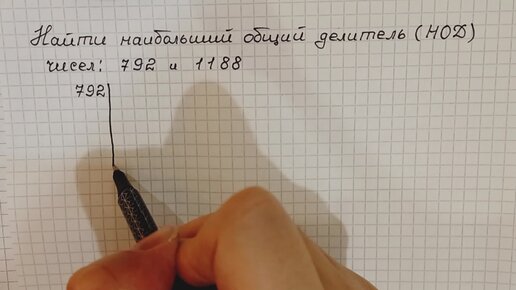 Найти наибольший общий делитель (НОД)
чисел: 792 и 1188
792